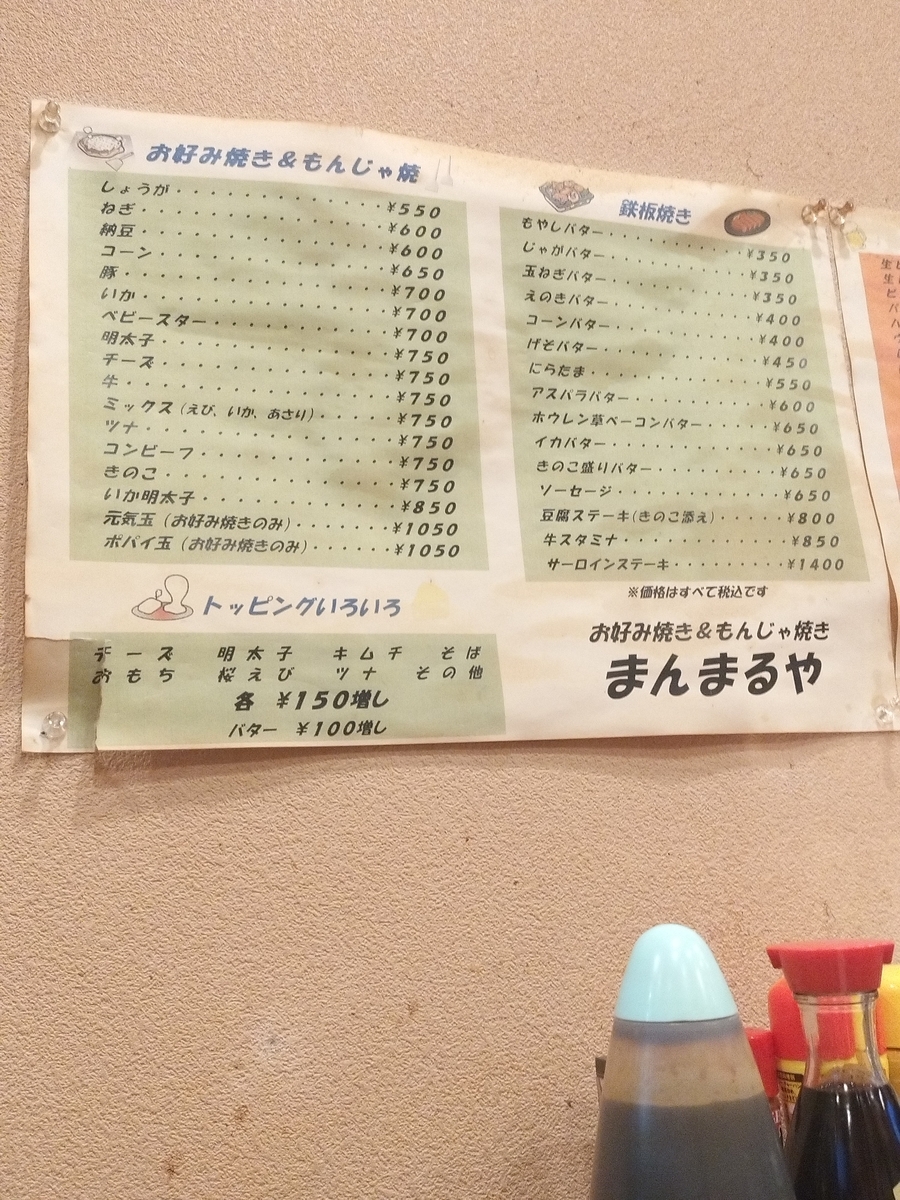 お好み焼き＆もんじゃ焼
しょうが・・・・・・・・・・・・・¥550
ねぎ・・・・・・・・・・・・・・・¥600
納豆・・・・・・・・・・・・・・・¥600
コーン・・・・・・・・・・・・・・¥650
豚・・・・・・・・・・・・・・・・¥700
いか・・・・・・・・・・・・・・・¥700
ベビースター・・・・・・・・・・・¥700
明太子・・・・・・・・・・・・・・¥750
チーズ・・・・・・・・・・・・・・¥750
牛・・・・・・・・・・・・・・・・¥750
ミックス（えび、いか、あさり）・・・・・¥750
ツナ・・・・・・・・・・・・・・・¥750
コンビーフ・・・・・・・・・・・・¥750
きのこ・・・・・・・・・・・・・・¥750
いか明太子・・・・・・・・・・・・¥850
元気玉（お好み焼きのみ）・・・・・・¥1050
ポパイ玉（お好み焼きのみ）・・・・・・¥1050
トッピングいろいろ
チーズ 明太子 キムチ そば
おもち 桜えび ツナ その他
各 ¥150増し
バター ¥100増し
鉄板焼き
もやしバター・・・・・・・・・・¥350
じゃがバター・・・・・・・・・・¥350
玉ねぎバター・・・・・・・・・・¥350
えのきバター・・・・・・・・・・¥400
コーンバター・・・・・・・・・・¥400
げそバター・・・・・・・・・・・¥450
にらたま・・・・・・・・・・・・¥550
アスパラバター・・・・・・・・・¥600
ホウレン草ベーコンバター・・・・・¥650
イカバター・・・・・・・・・・・¥650
きのこ盛りバター・・・・・・・・¥650
ソーセージ・・・・・・・・・・・¥650
豆腐ステーキ（きのこ添え）・・・・・¥800
牛スタミナ・・・・・・・・・・・¥850
サーロインステーキ・・・・・・・・¥1400
※価格はすべて税込です
お好み焼き＆もんじゃ焼き
まんまるや